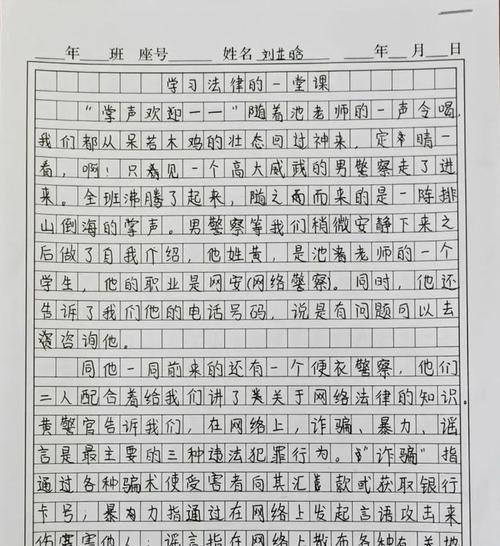 年 班 座号 姓名 刘芷晗 年 月 日
学习法律的一堂课
“掌声欢迎——”随着池老师的一声令喝,
我们都从呆若木鸡的状态回过神来,定睛一
看,啊!只看见一个高大威武的男警察走了进
来。全班沸腾了起来,随之而而来的是一阵排
山倒海的掌声。男警察等我们稍微安静下来之
后做了自我介绍,他姓黄,是池老师的一个
学生,他的职业是网安(网络警察)。同时,他还
告诉了我们他的电话号码,说是有问题可以去
咨询他。
同他一同前来的还有一个便衣警察,他们
二人配合着给我们讲了关于网络法律的知识。
黄警官告诉我们,在网络上,诈骗、暴力、谣
言是最主要的三种违法犯罪行为。“诈骗”指
通过各种骗术使受害者向其汇款或获取银行
卡号,暴力指通过在网络上发起言语攻击来
伤害他人;谣言指在网络上散布各种有关